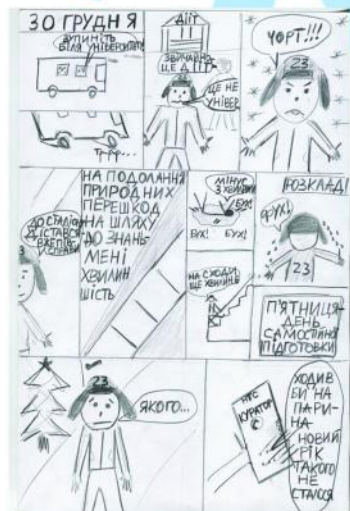 30 ГРУДНЯ
ЗУПИНІТЬ
БІЛЯ УНІВЕРСИТЕТУ
Трр...
ДІІТ
ЗВИЧАЙНО,
ЦЕ ДІІТ
ЦЕ НЕ
УНІВЕР
ЧОРТ!!!
23
ДІСТАВСЯ
НА ПОДОЛАННЯ
ПРИРОДНИХ
ПЕРЕШКОД
НА ШЛЯХУ
ДО ЗНАНЬ-
МЕНІ
ХВИЛИН
ШІСТЬ
МІНУС
3 ХВИЛИНИ
БУХ!
БУХ!
БУХ!
НА СХОДИ
ЩЕ ХВИЛИНА
РОЗКЛАД!
ФУХ!
23
П'ЯТНИЦЯ-
ДЕНЬ
САМОСТІЙНОЇ
ПІДГОТОВКИ
23
ЯКОГО...
КУРАТОР
ХОДИВ
БИ НА
ПАРИ-
НА
НОВИЙ
РІК
ТАКОГО
НЕ
СТАЛОСЯ